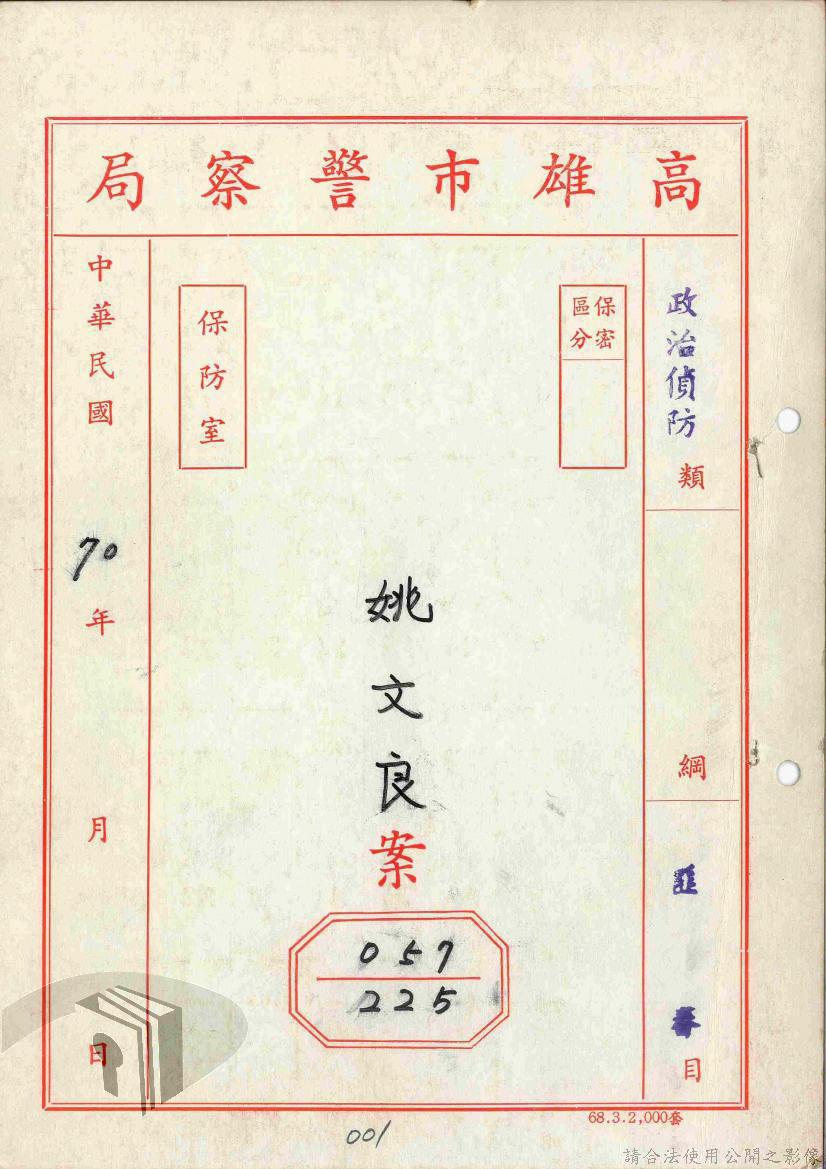 高雄市警察局
政治偵防類
綱
匪
目
保密
區分
姚文良案
057
225
保防室
中華民國70年月日
68.3.2,000套
001
請合法使用公開之影像